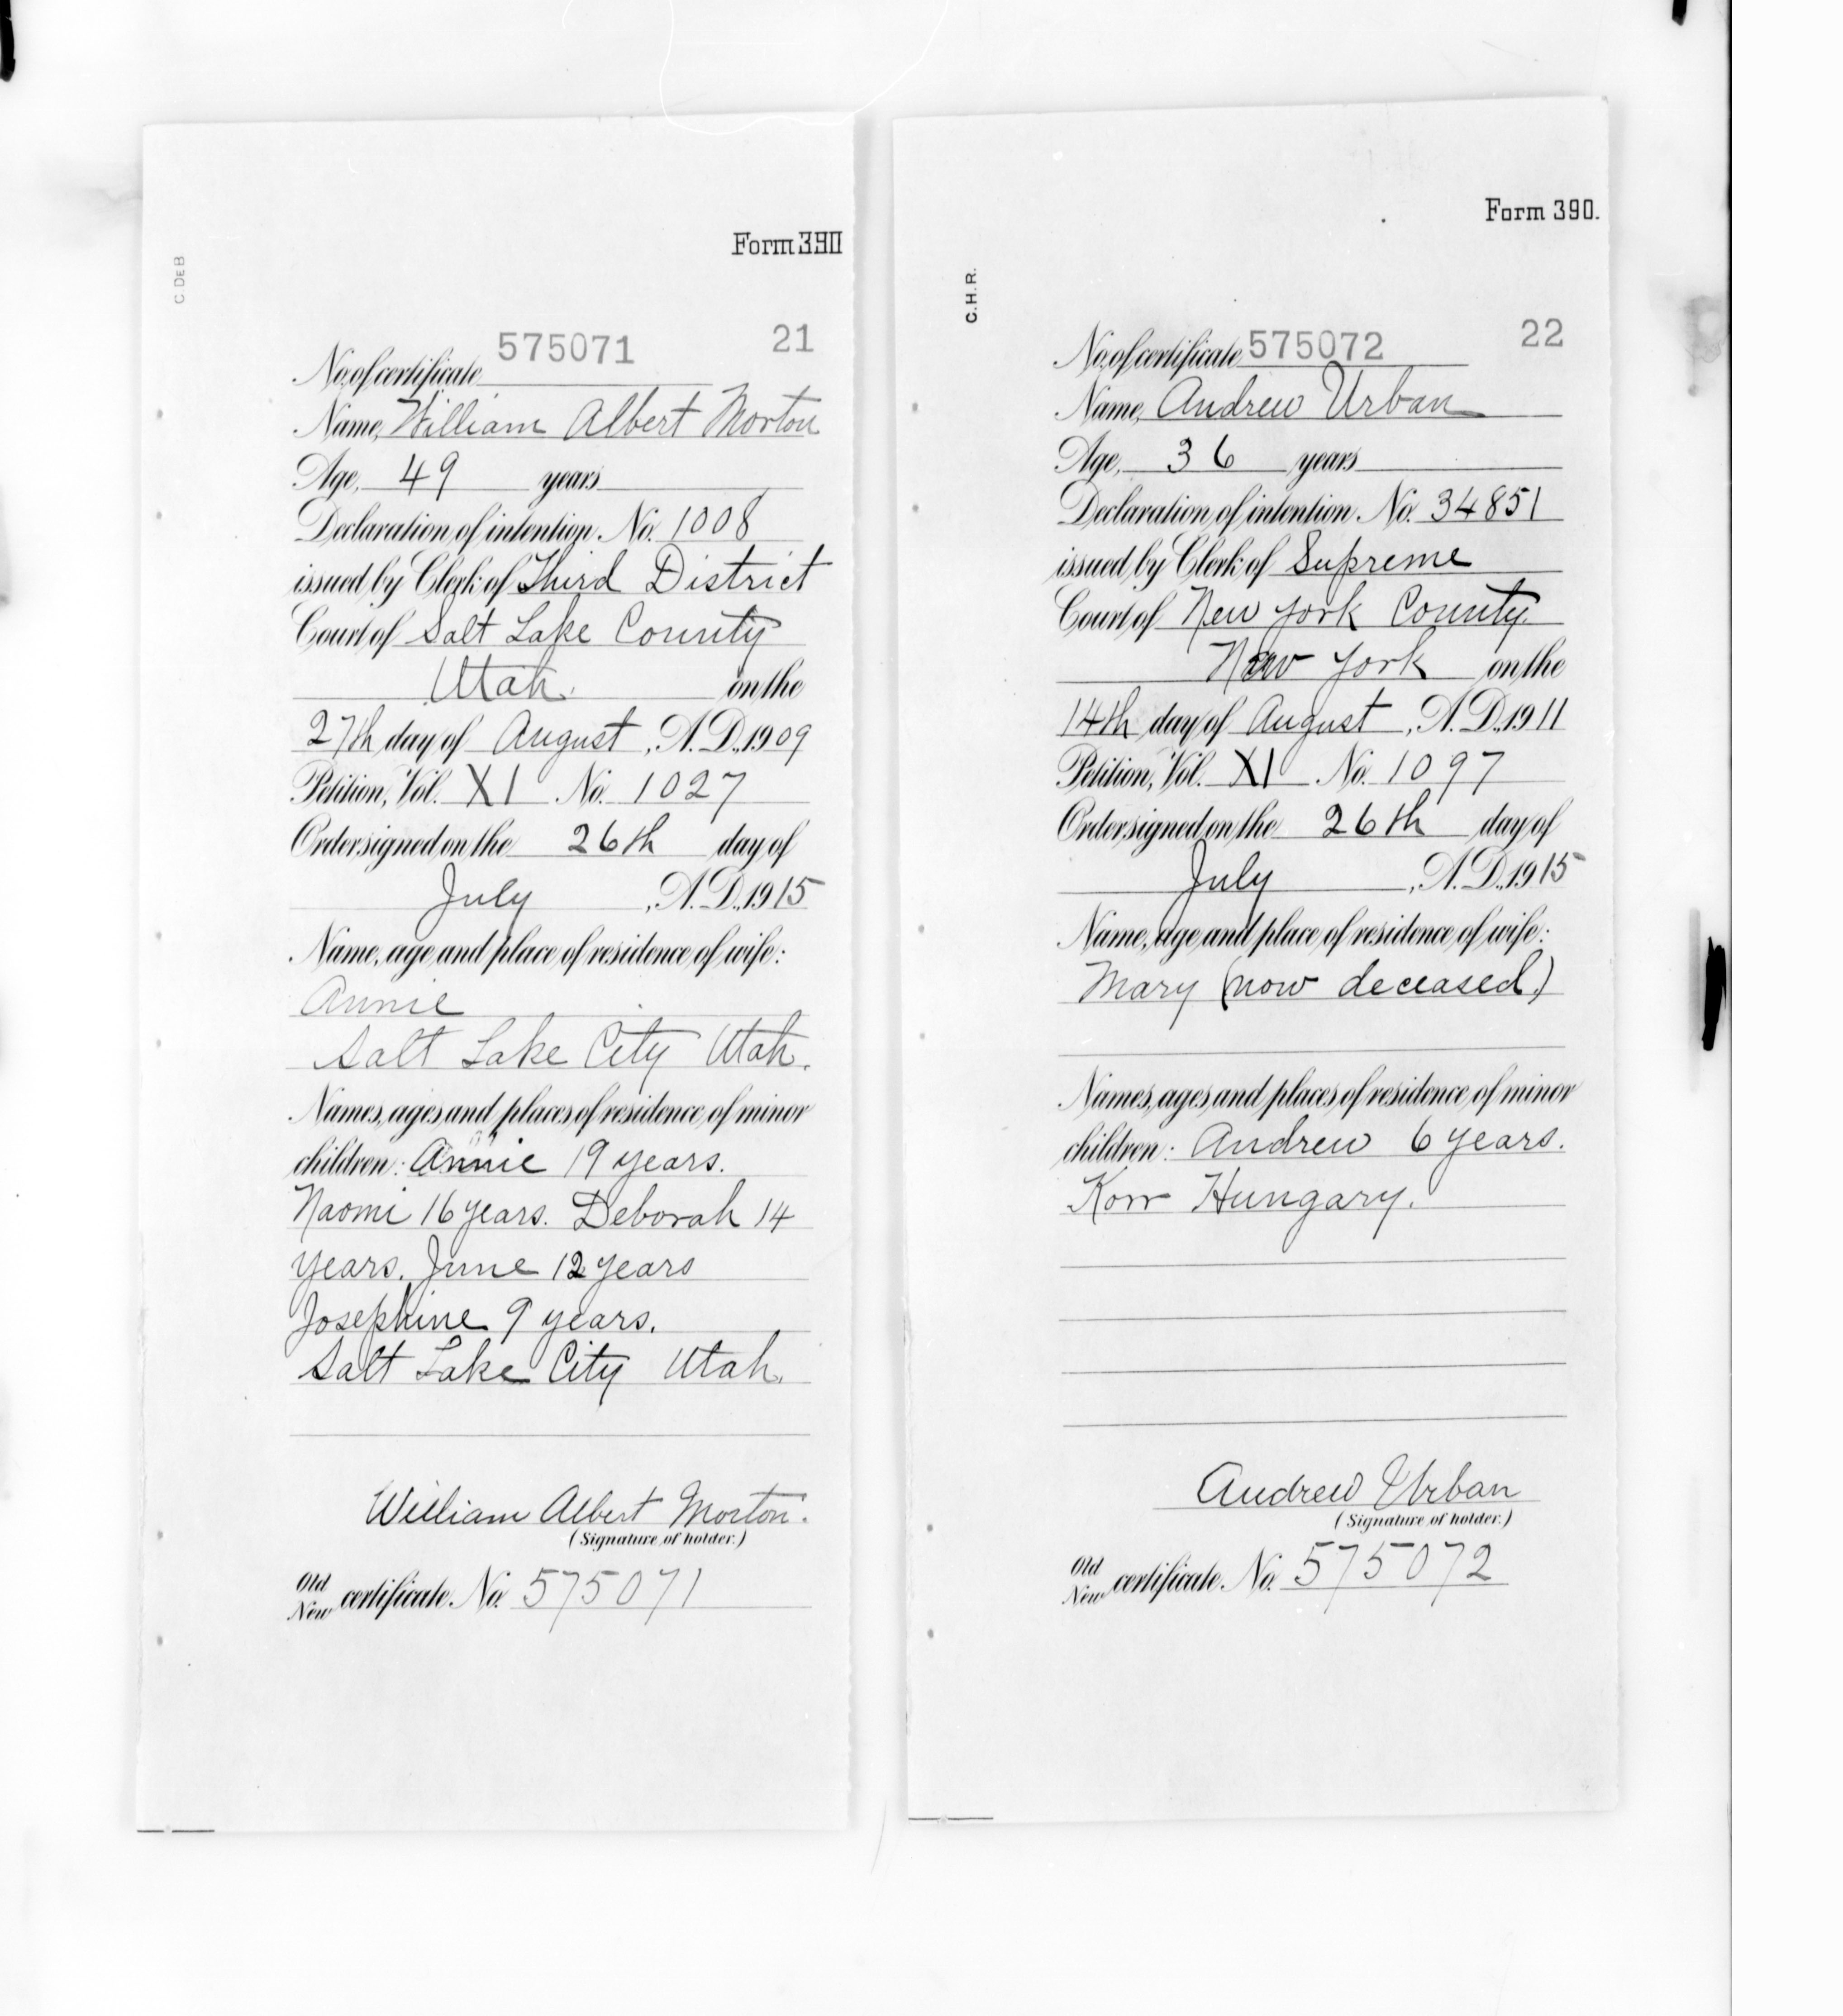 Form 390
C. DEB
575071 21
No. of certificate
Name, William Albert Morton
Age, 49 years
Declaration of intention No. 1008
issued by Clerk of Third District
Court of Salt Lake County
Utah. on the
27th day of August, A.D., 1909
Petition, Vol. XI No. 1027
Order signed on the 26th day of
July, A.D., 1915
Name, age and place of residence of wife:
Annie
Salt Lake City Utah.
Names, ages and places of residence of minor
children: Annie 19 years.
Naomi 16 years. Deborah 14
years. June 12 years
Josephine 9 years.
Salt Lake City Utah.
William Albert Morton.
(Signature of holder.)
Old
New certificate No. 575071
Form 390.
C.H.R.
22
No. of certificate 575072
Name, Andrew Urban
Age, 36 years
Declaration of intention No. 34851
issued by Clerk of Supreme
Court of New York County
New York on the
14th day of August, A.D., 1911
Petition, Vol. XI No. 1097
Order signed on the 26th day of
July, A.D., 1915
Name, age and place of residence of wife:
Mary (now deceased.)
Names, ages and places of residence of minor
children: Andrew 6 years.
Hungary.
Andrew Urban
(Signature of holder.)
Old
New certificate No. 575072